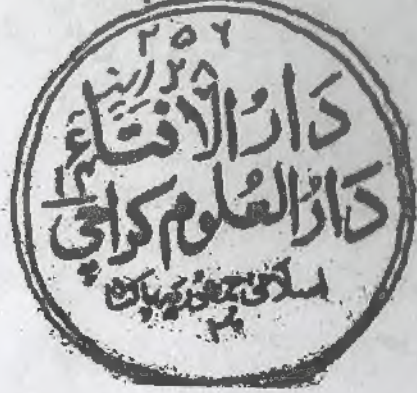 ۲۵۶
۲۸
دَارُ الْاِفْتَاء
دَارُ الْعُلُوم کراچی
اسلامی جمہوریہ پاکستان